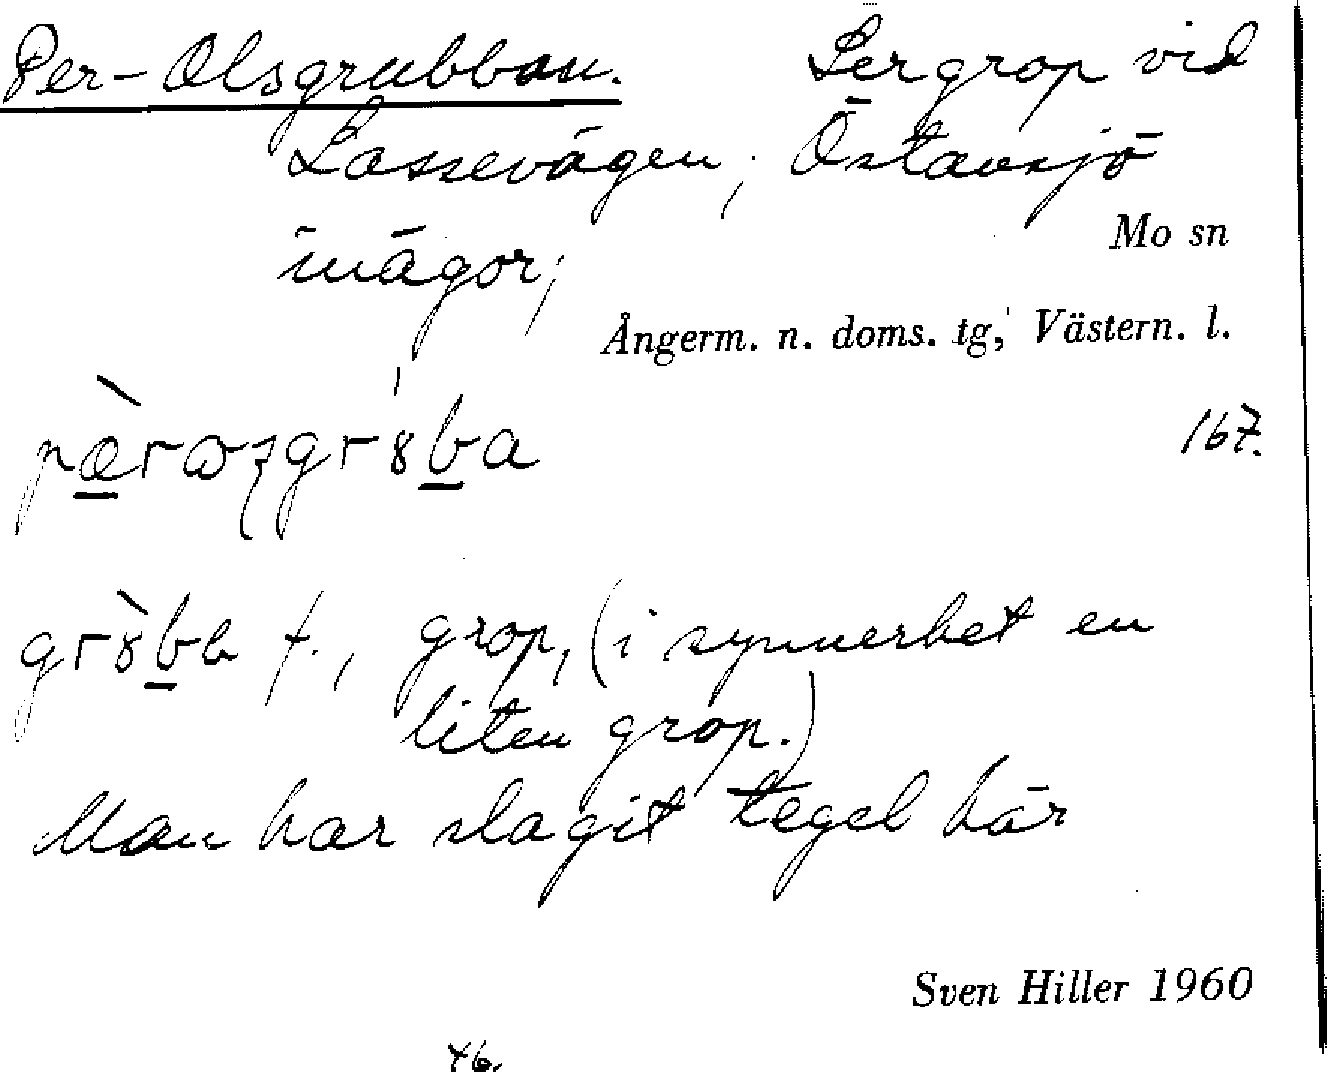 Per-Olsgrubban. Lergrop vid
Lassevägen; Östansjö
inägor;
Mo sn
Ångerm. n. doms. tg, Västern. l.
167.
grop, (i synnerhet en
liten grop.)
Man har slagit tegel här
Sven Hiller 1960
46.